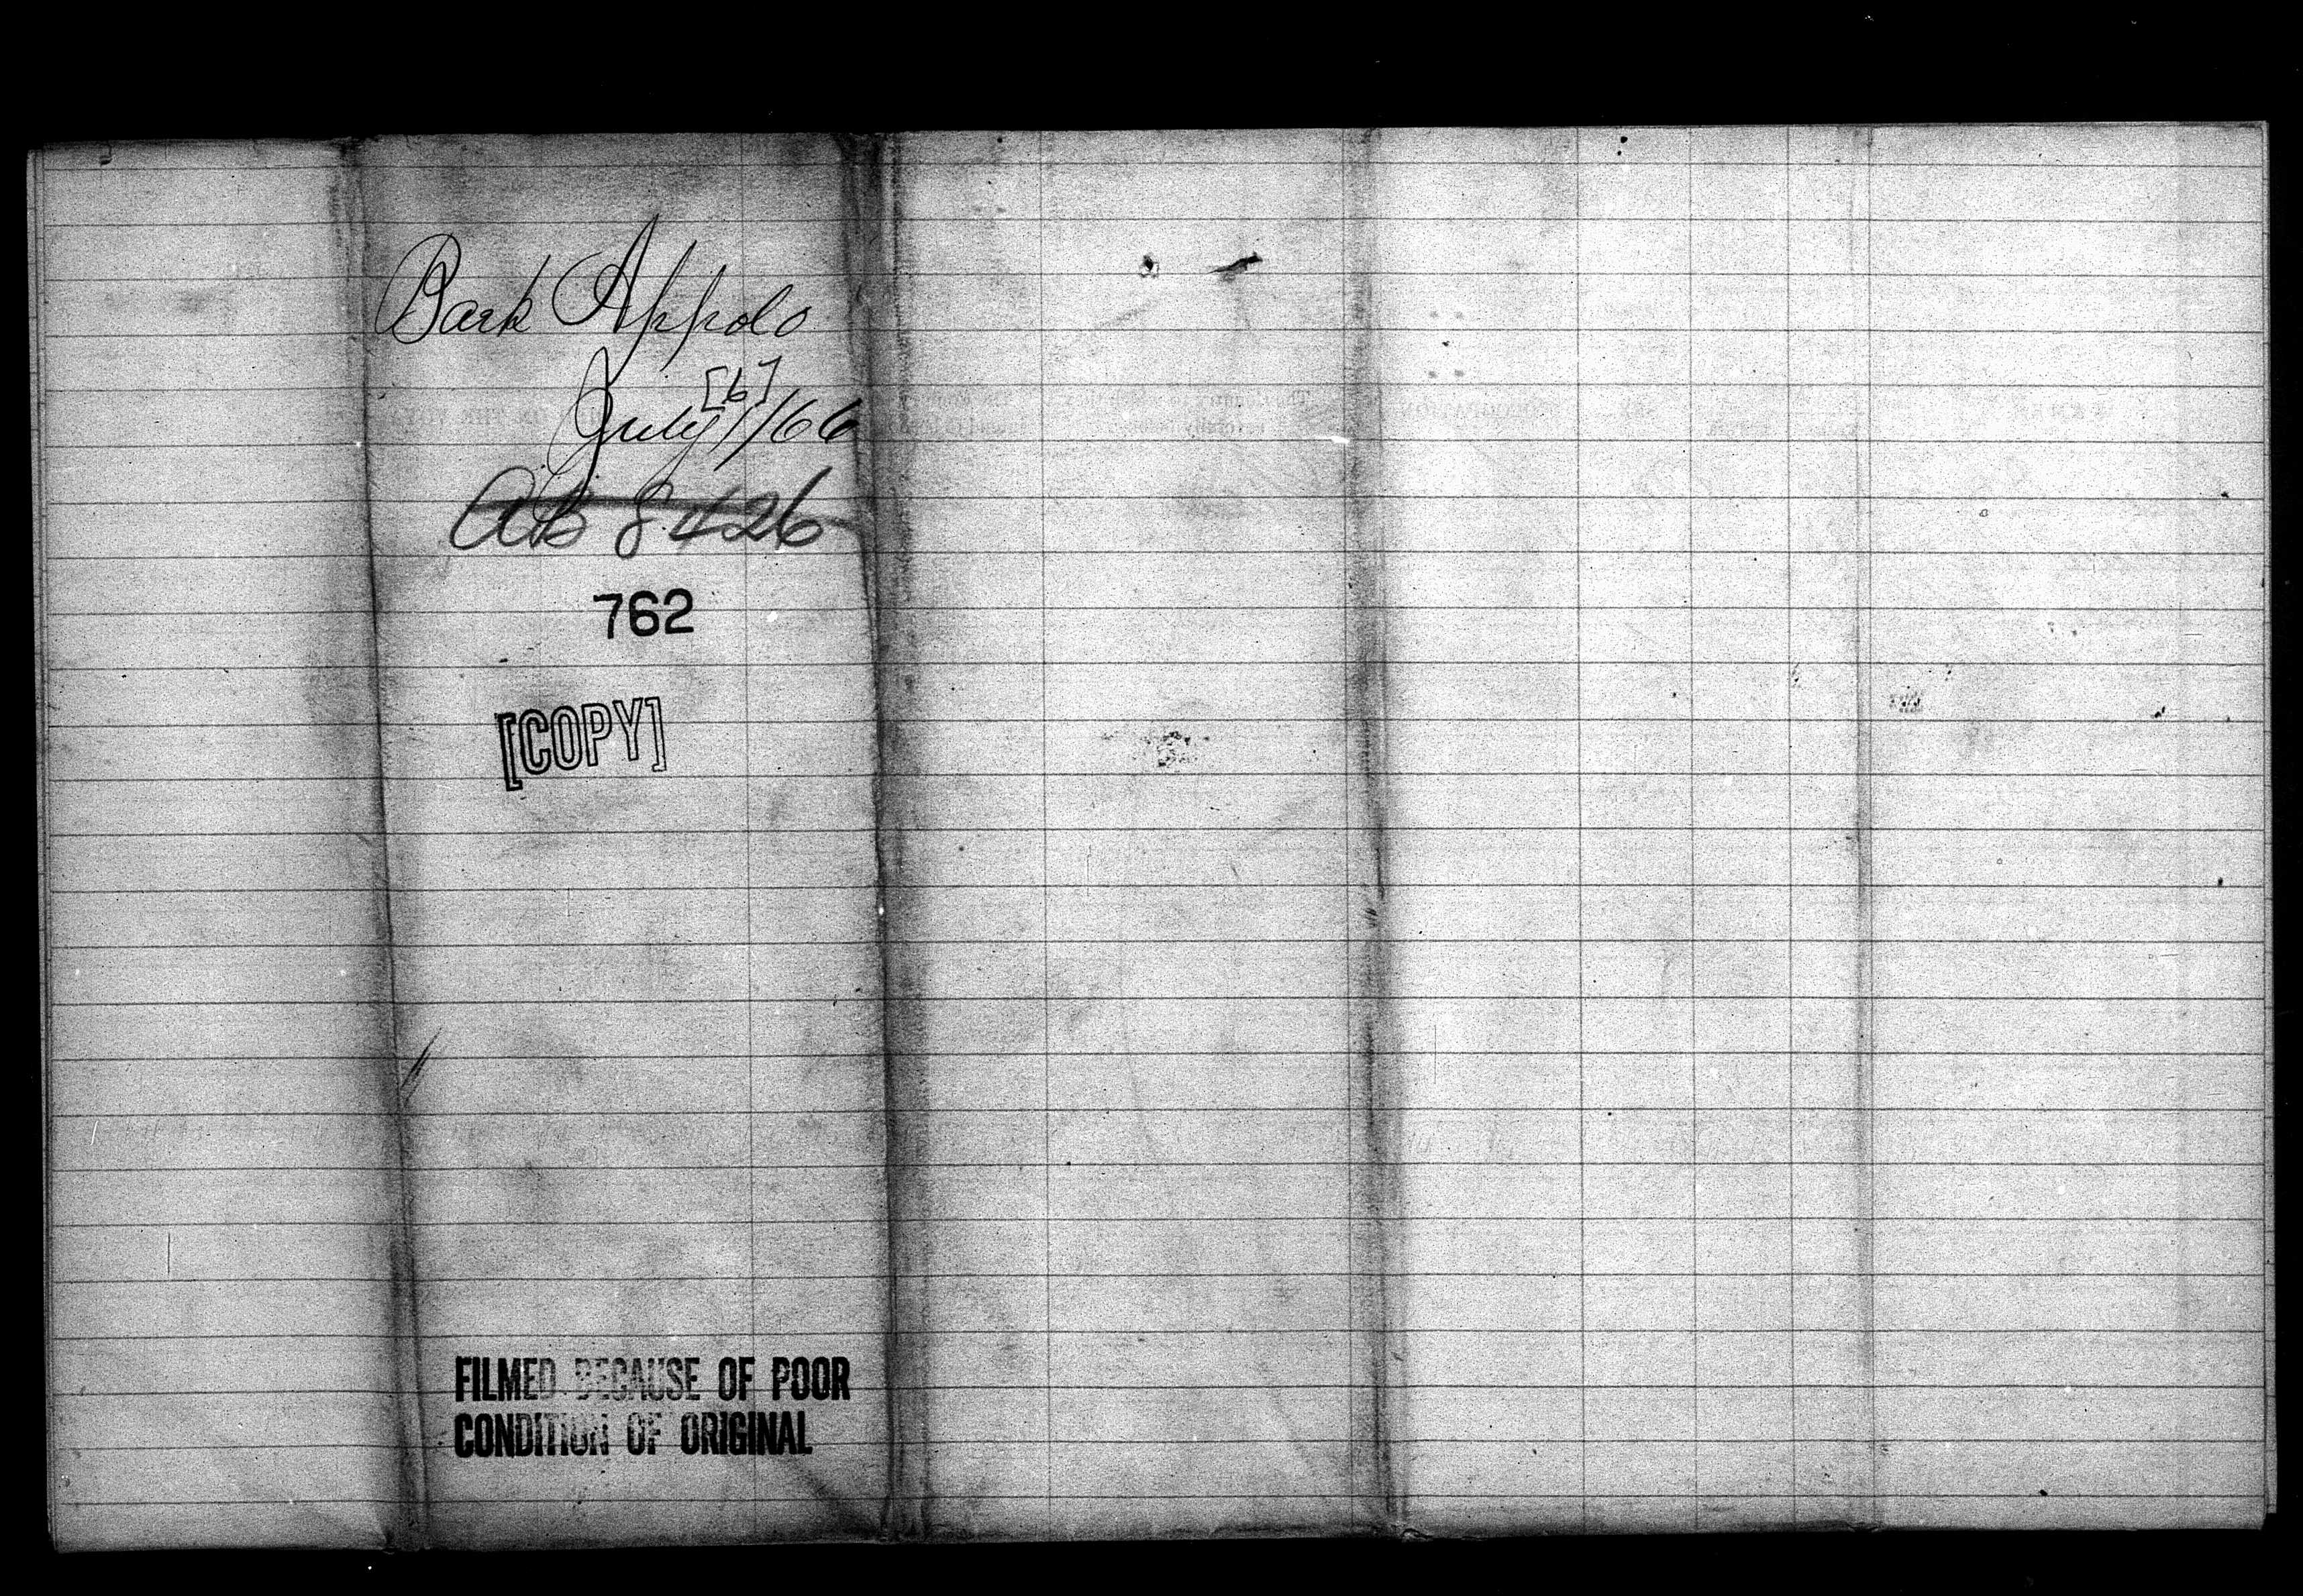 Bark Appolo
[6]
July 1/66
AB 8426
762
[COPY]
FILMED BECAUSE OF POOR
CONDITION OF ORIGINAL